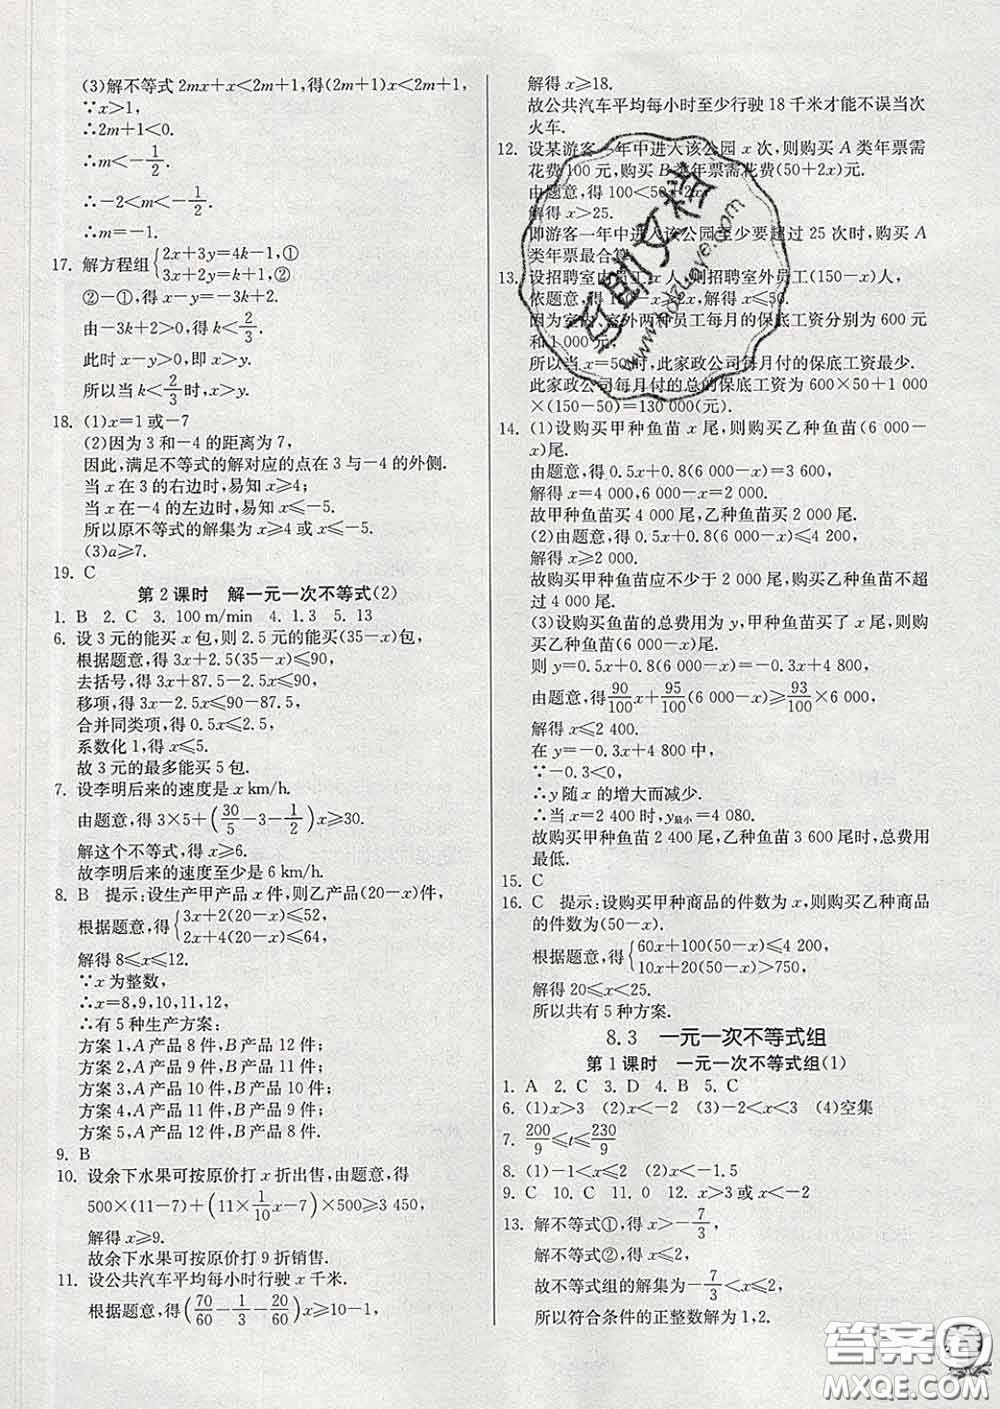 (3)解不等式 2mx+x<2m+1,得(2m+1)x<2m+1,
∵x>1,
∴2m+1<0.
∴m<-1/2.
∴-2<m<-1/2.
∴m=-1.
17. 解方程组{2x+3y=4k-1,①
3x+2y=k+1,②
②-①,得 x-y=-3k+2.
由-3k+2>0,得 k<2/3.
此时 x-y>0,即 x>y.
所以当 k<2/3时,x>y.
18. (1)x=1 或-7
(2)因为 3 和-4 的距离为 7,
因此,满足不等式的解对应的点在 3 与-4 的外侧.
当 x 在 3 的右边时,易知 x⩾4;
当 x 在-4 的左边时,易知 x⩽-5.
所以原不等式的解集为 x⩾4 或 x⩽-5.
(3)a⩾7.
19. C
第 2 课时 解一元一次不等式(2)
1. B 2. C 3. 100 m/min 4. 1.3 5. 13
6. 设 3 元的能买 x 包,则 2.5 元的能买(35-x)包,
根据题意,得 3x+2.5(35-x)⩽90,
去括号,得 3x+87.5-2.5x⩽90,
移项,得 3x-2.5x⩽90-87.5,
合并同类项,得 0.5x⩽2.5,
系数化 1,得 x⩽5.
故 3 元的最多能买 5 包.
7. 设李明后来的速度是 x km/h.
由题意,得 3×5+(30/5-3-1/2)x⩾30.
解这个不等式,得 x⩾6.
故李明后来的速度至少是 6 km/h.
8. B 提示:设生产甲产品 x 件,则乙产品(20-x)件,
根据题意,得{3x+2(20-x)⩽52,
2x+4(20-x)⩽64,
解得 8⩽x⩽12.
∵x 为整数,
∴x=8,9,10,11,12,
∴有 5 种生产方案:
方案 1,A 产品 8 件,B 产品 12 件;
方案 2,A 产品 9 件,B 产品 11 件;
方案 3,A 产品 10 件,B 产品 10 件;
方案 4,A 产品 11 件,B 产品 9 件;
方案 5,A 产品 12 件,B 产品 8 件.
9. B
10. 设余下水果可按原价打 x 折出售,由题意,得
500×(11-7)+(11×1/10x-7)×500⩾3 450,
解得 x⩾9.
故余下水果可按原价打 9 折销售.
11. 设公共汽车平均每小时行驶 x 千米.
根据题意,得(70/60-1/3-20/60)x⩾10-1,
解得 x⩾18.
故公共汽车平均每小时至少行驶 18 千米才能不误当次
火车.
12. 设某游客一年中进入该公园 x 次,则购买 A 类年票需
花费 100 元,购买 B 类年票需花费(50+2x)元.
由题意,得 100<50+2x,
解得 x>25.
即游客一年中进入该公园至少要超过 25 次时,购买 A
类年票最合算.
13. 设招聘室内员工 x 人,则招聘室外员工(150-x)人,
依题意,得 150-x⩾2x,解得 x⩽50.
因为室内、室外两种员工每月的保底工资分别为 600 元
和 1 000 元,
所以当 x=50 时,此家政公司每月付的保底工资最少.
此家政公司每月付的总的保底工资为 600×50+1 000
×(150-50)=130 000(元).
14. (1)设购买甲种鱼苗 x 尾,则购买乙种鱼苗(6 000-
x)尾.
由题意,得 0.5x+0.8(6 000-x)=3 600.
解得 x=4 000,6 000-x=2 000.
故甲种鱼苗买 4 000 尾,乙种鱼苗买 2 000 尾.
(2)由题意,得 0.5x+0.8(6 000-x)⩽4 200,
解得 x⩾2 000.
故购买甲种鱼苗应不少于 2 000 尾,购买乙种鱼苗不超
过 4 000 尾.
(3)设购买鱼苗的总费用为 y,甲种鱼苗买了 x 尾,则购
买乙种鱼苗(6 000-x)尾.
则 y=0.5x+0.8(6 000-x)=-0.3x+4 800,
由题意,得90/100x+95/100(6 000-x)⩾93/100×6 000,
解得 x⩽2 400.
在 y=-0.3x+4 800 中,
∵-0.3<0,
∴y 随 x 的增大而减少.
∴当 x=2 400 时,y最小=4 080.
故购买甲种鱼苗 2 400 尾,乙种鱼苗 3 600 尾时,总费用
最低.
15. C
16. C 提示:设购买甲种商品的件数为 x,则购买乙种商品
的件数为(50-x).
根据题意,得{60x+100(50-x)⩽4 200,
10x+20(50-x)>750,
解得 20⩽x<25.
所以共有 5 种方案.
8.3 一元一次不等式组
第 1 课时 一元一次不等式组(1)
1. A 2. C 3. D 4. B 5. C
6. (1)x>3 (2)x<-2 (3)-2<x<3 (4)空集
7. 200/9⩽t⩽230/9
8. (1)-1<x⩽2 (2)x<-1.5
9. C 10. C 11. 0 12. x>3 或 x<-2
13. 解不等式①,得 x>-7/3,
解不等式②,得 x⩽2,
故不等式组的解集为-7/3<x⩽2,
所以符合条件的正整数解为 1,2.
百助文档
www.bazuoye.com
答案圈
MXQE.COM